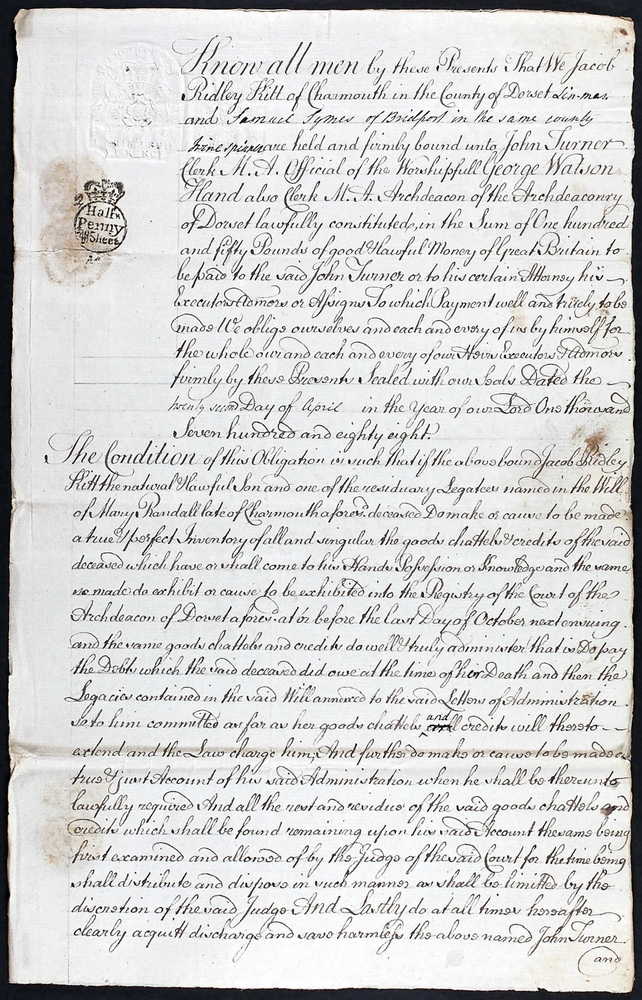 Know all men by these Presents That We Jacob
Ridley Kitt of Charmouth in the County of Dorset
and Samuel Symes of Bridport in the same county
are held and firmly bound unto John Turner
Clerk M. A. Official of the Worshipfull George Watson
Hand also Clerk M. A. Archdeacon of the Archdeaconry
of Dorset lawfully constituted, in the Sum of One hundred
and fifty Pounds of good & lawful Money of Great Britain to
be paid to the said John Turner or to his certain Attorney his
Executors Admors or Assigns To which Payment well and truly to be
made We oblige ourselves and each and every of us by himself for
the whole our and each and every of our Heirs Executors & Admors
firmly by these Presents Sealed with our Seals Dated the
twenty second Day of April in the Year of our Lord One thousand
Seven hundred and eighty eight.
Half
Penny
Sheet
The Condition of this Obligation is such that if the above bound Jacob Ridley
Kitt the natural & lawful Son and one of the residuary Legatees named in the Will
of Mary Randall late of Charmouth afores.d deceased Do make or cause to be made
a true & perfect Inventory of all and singular the goods chattels & credits of the said
deceased which have or shall come to his Hands Possession or Knowledge and the same
so made do exhibit or cause to be exhibited into the Registry of the Court of the
Archdeacon of Dorset afores.d at or before the last Day of October next ensuing
and the same goods chattels and credits do well & truly administer that is Do pay
the Debts which the said deceased did owe at the time of her Death and then the
Legacies contained in the said Will annexed to the said Letters of Administration
so to him committed as far as her goods chattels and credits will thereto
extend and the Law charge him, And further do make or cause to be made a
true & just Account of his said Administration when he shall be thereunto
lawfully required And all the rest and residue of the said goods chattels and
credits which shall be found remaining upon his said Account the same being
first examined and allowed of by the Judge of the said Court for the time being
shall distribute and dispose in such manner as shall be limited by the
discretion of the said Judge And Lastly do at all times hereafter
clearly acquitt discharge and save harmless the above named John Turner
and